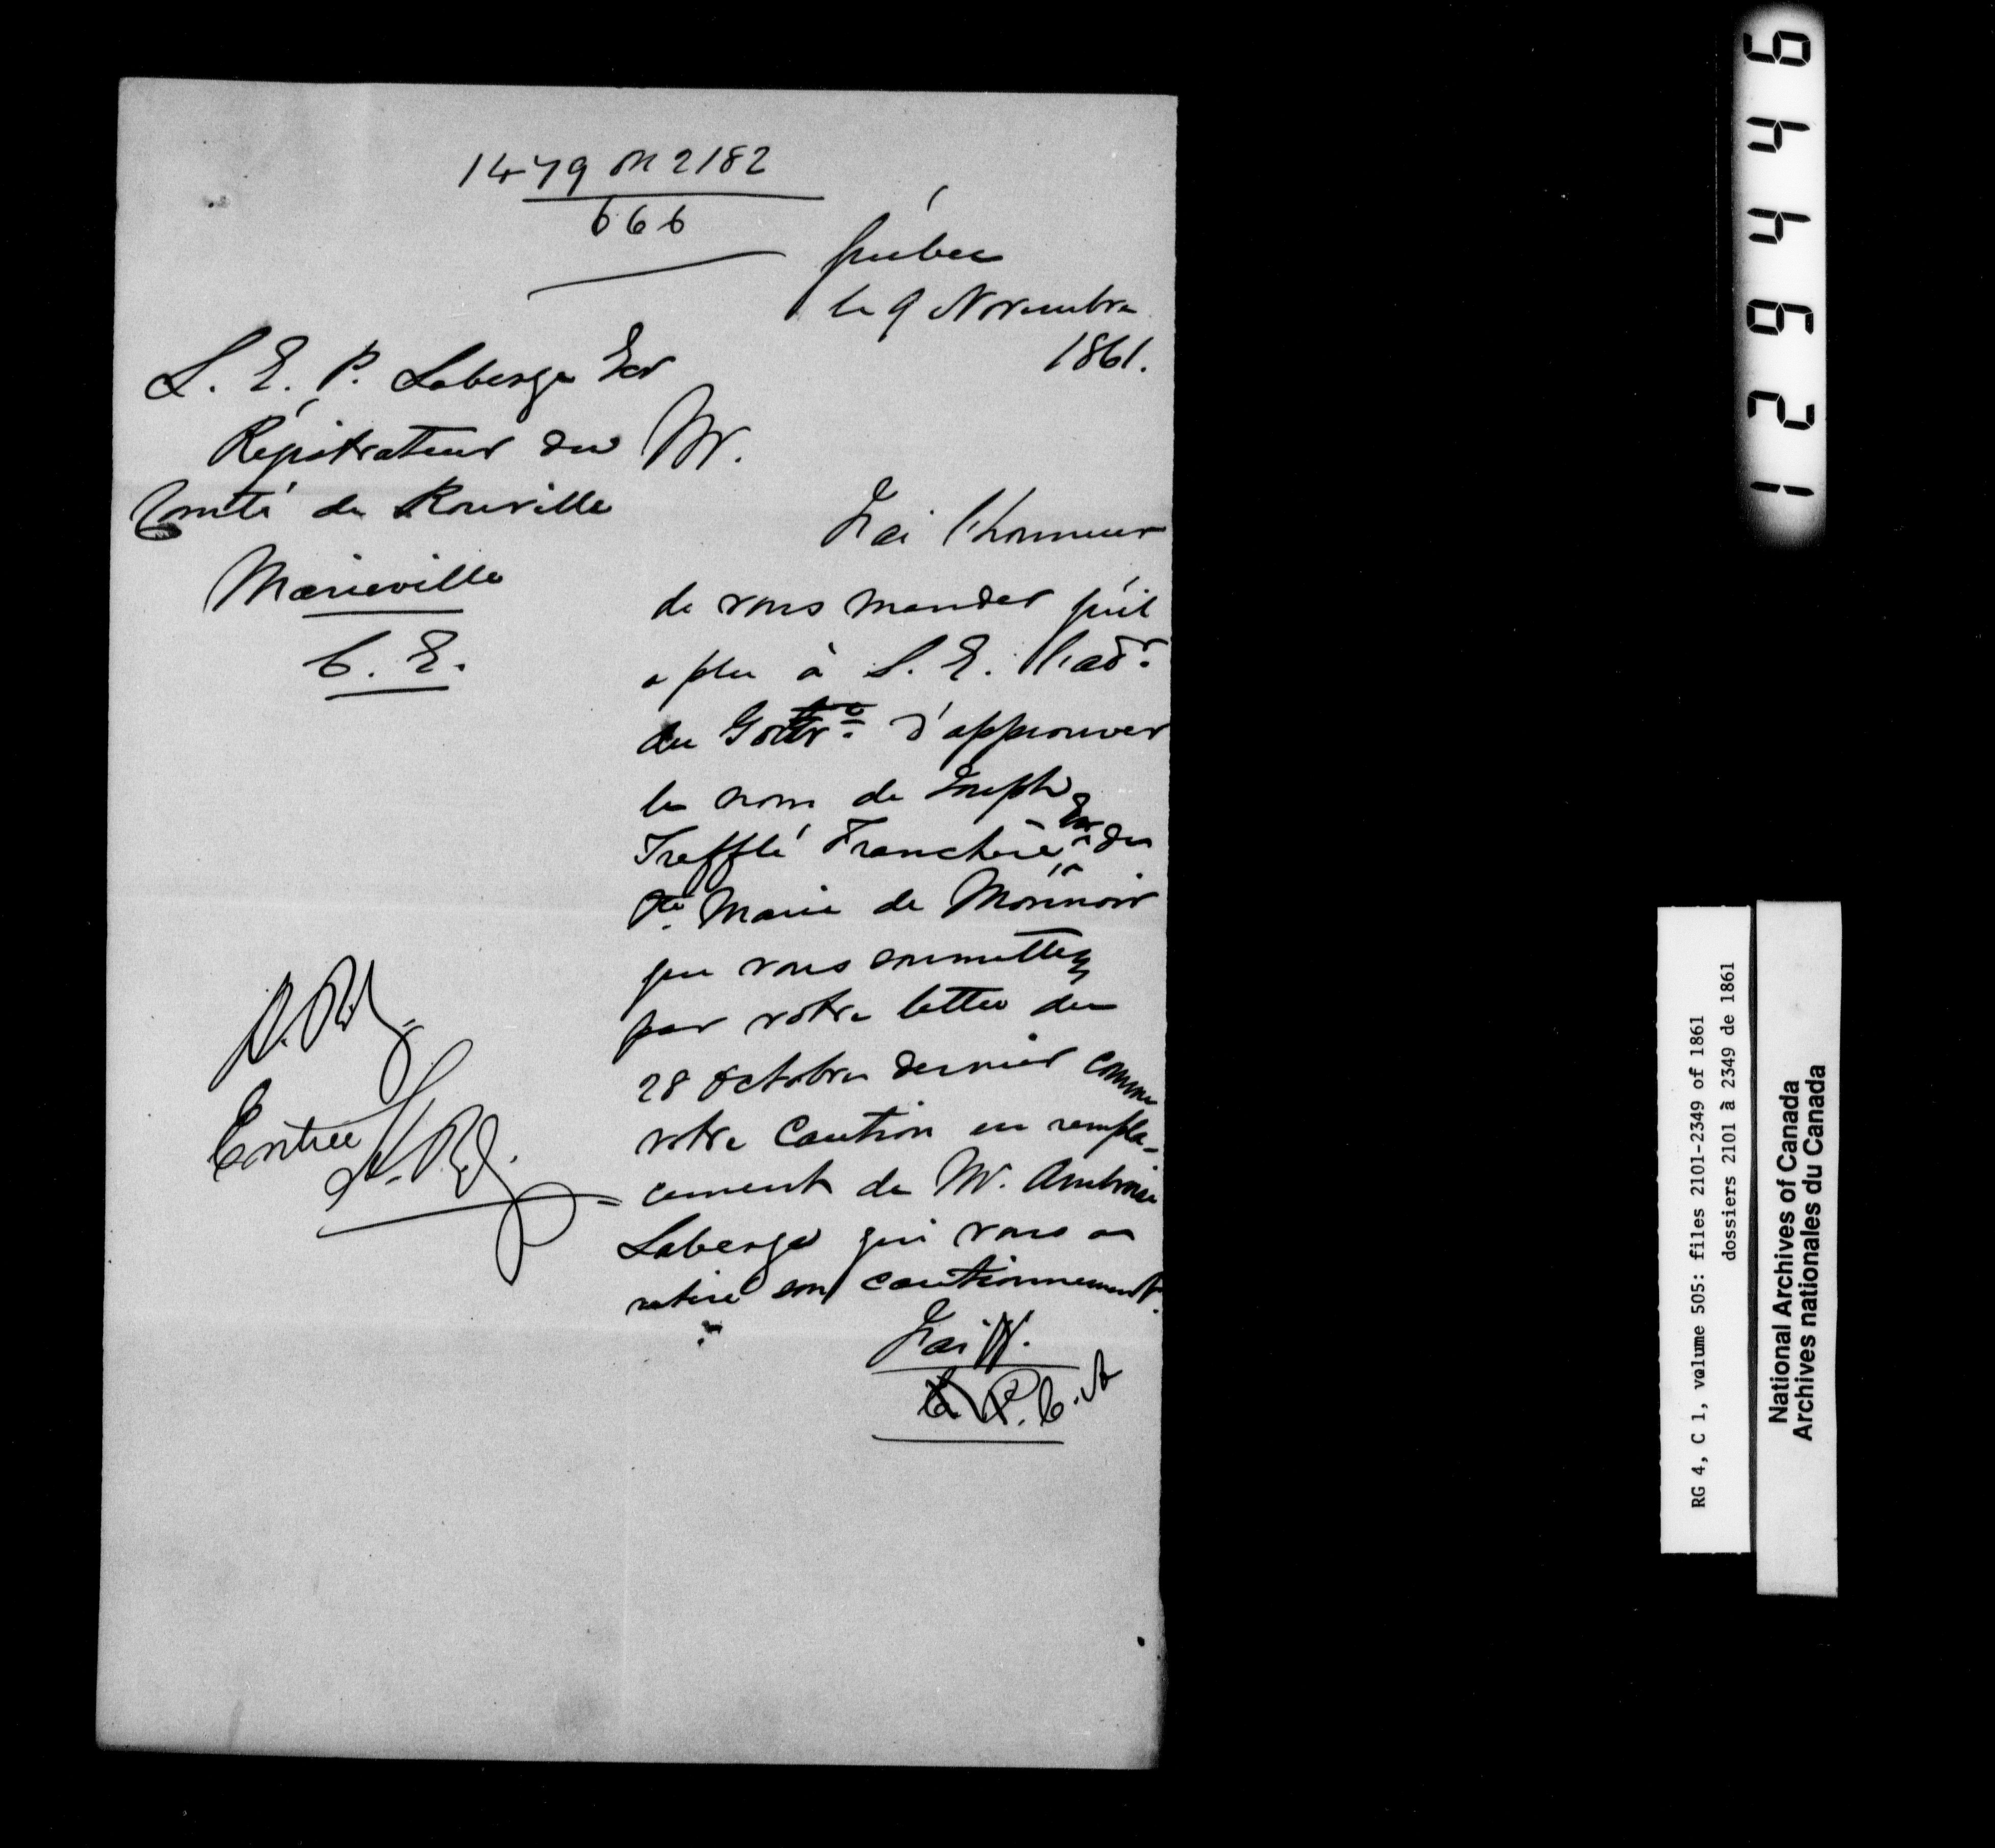 1479 on 2182
666
Québec
le 9 Novembre
1861.
L. E. P. Laberge Ecr
Régistrateur du
Comté de Rouville
Marieville
C. E.
Mr.
J'ai l'honneur
de vous mander qu'il
a plu à S. E. l'adr.
du d'approuver
le nom de Joseph
Trefflé Franchère Ecr de
Ste Marie de Monnoir
que vous soumettez
par votre lettre du
28 Octobre dernier comme
votre Caution en rempla-
cement de Mr. Ambroise
Laberge qui vous a
retiré son cautionnement.
J'ai &c.
P. C. A
Entrée
129446
RG 4, C 1, volume 505: files 2101-2349 of 1861
dossiers 2101 à 2349 de 1861
National Archives of Canada
Archives nationales du Canada